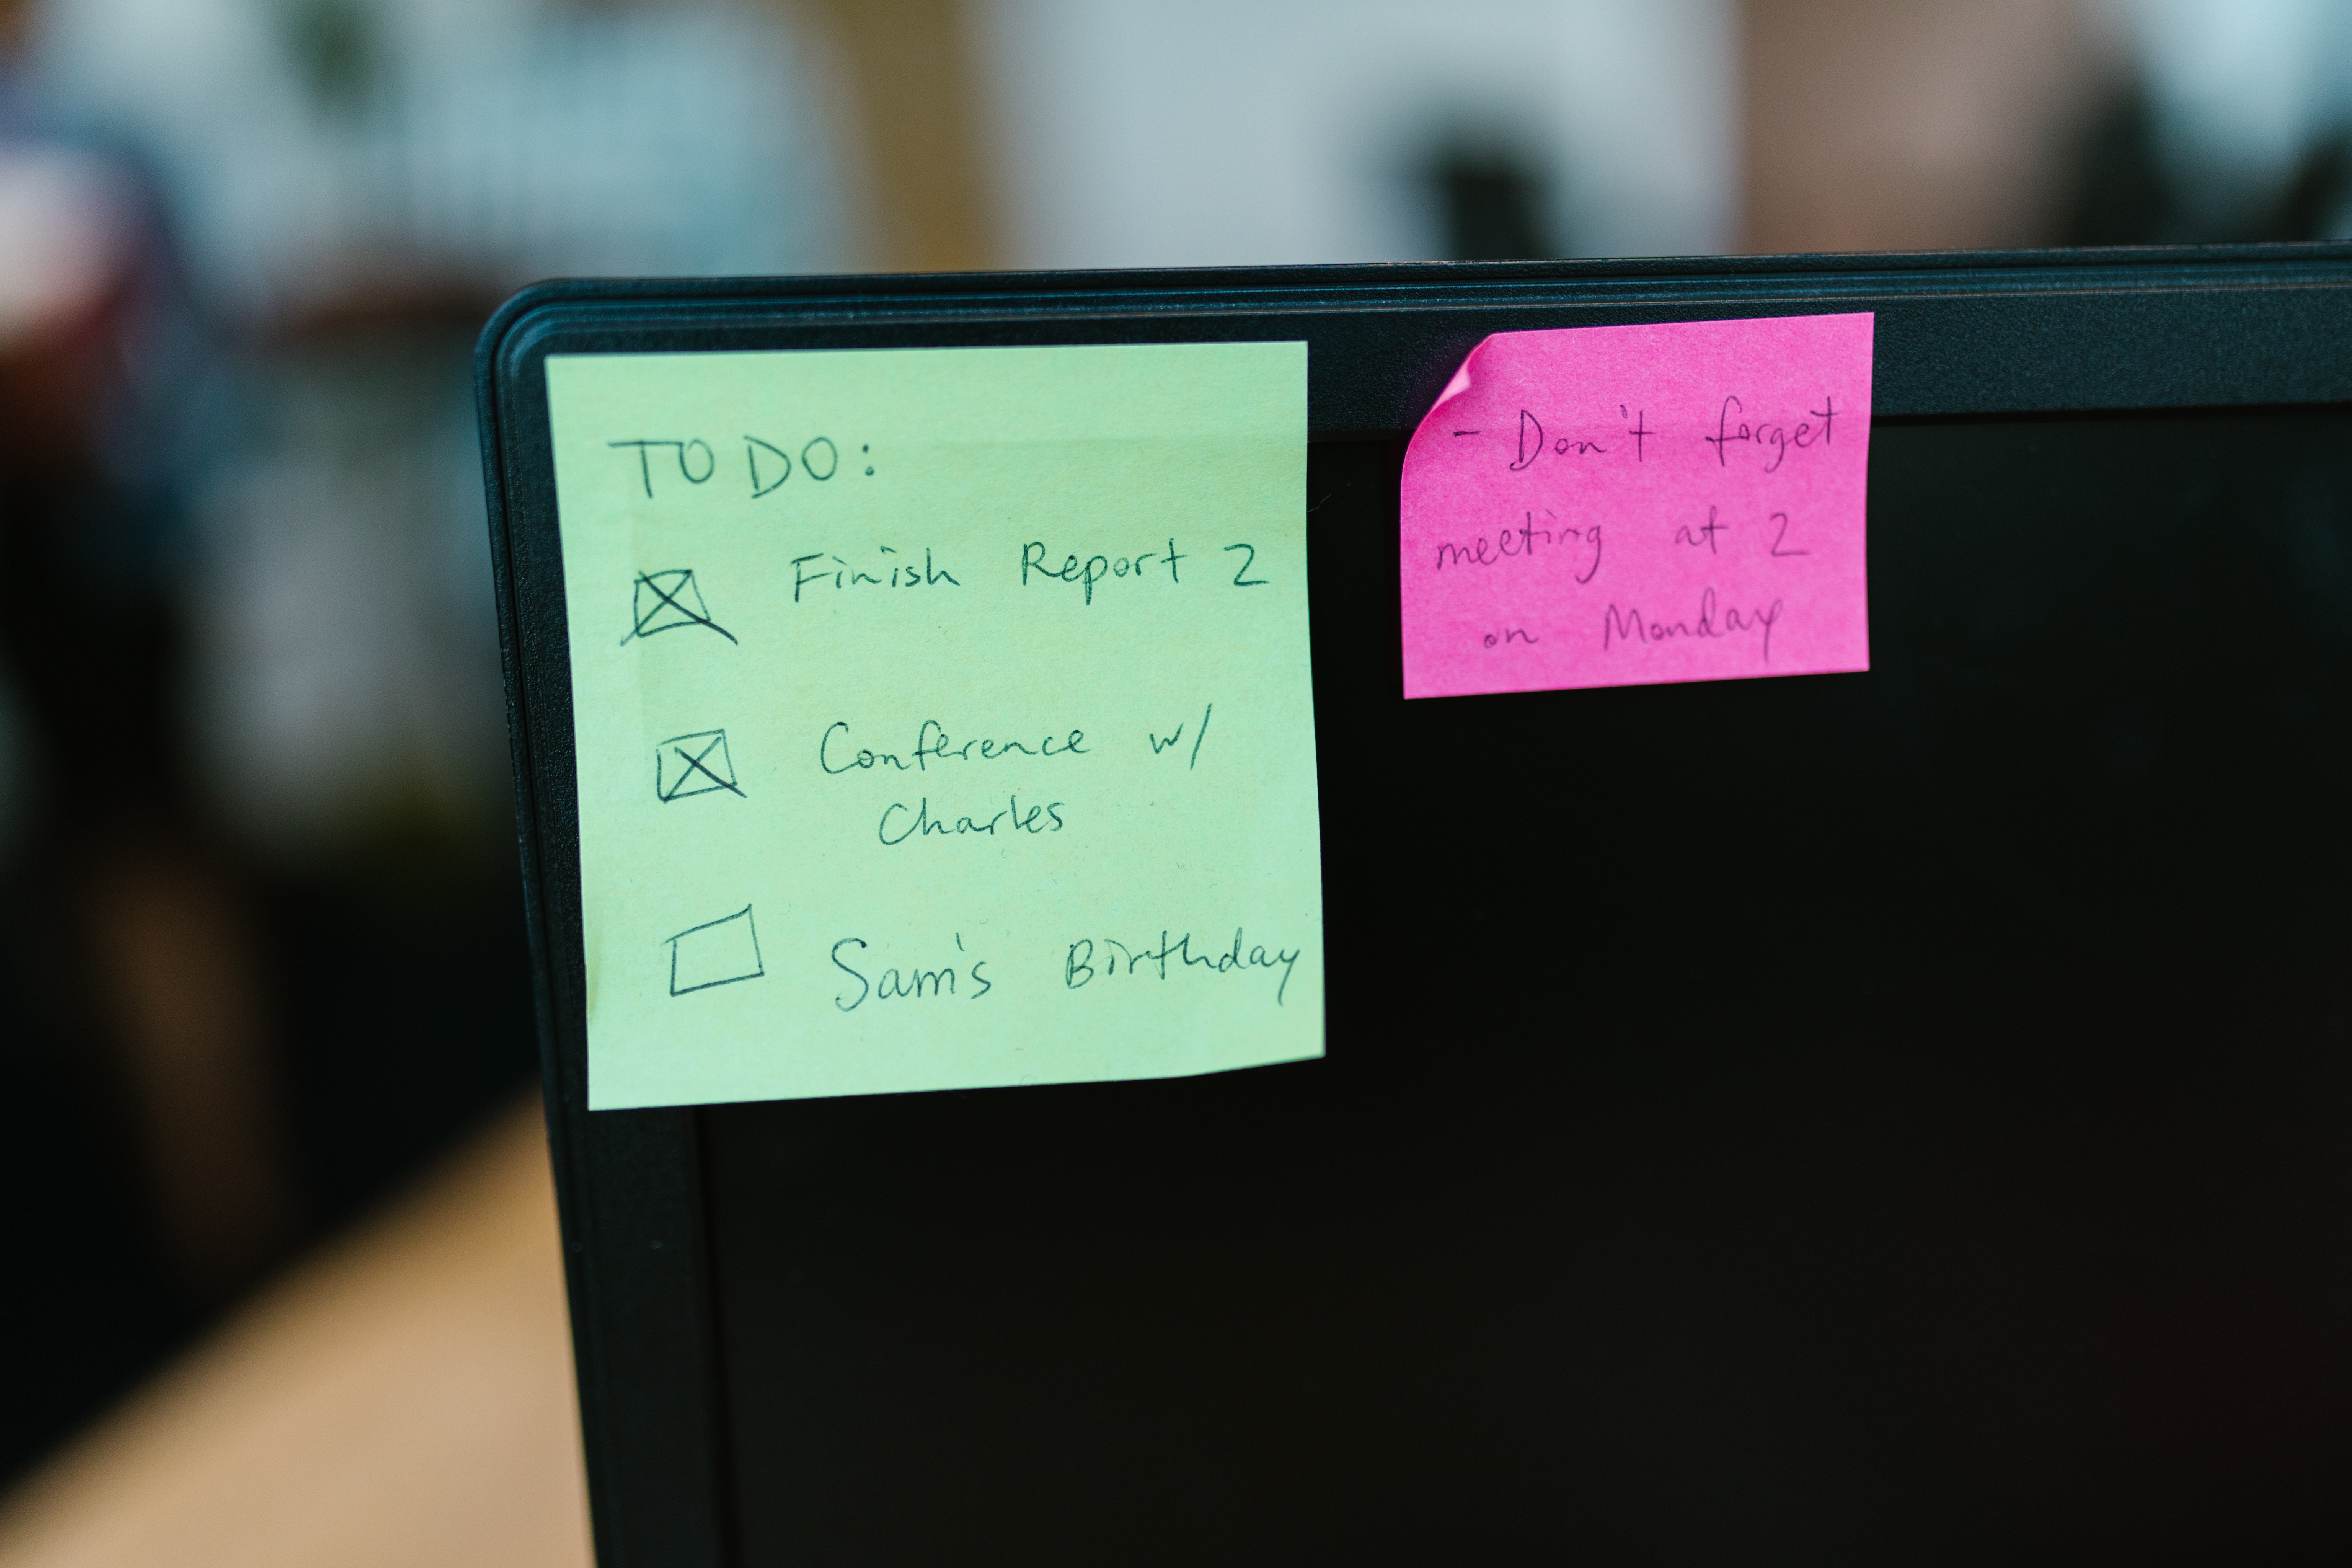 TO DO:
Finish Report 2
Conference w/
Charles
Sam's Birthday
- Don't forget
meeting at 2
on Monday